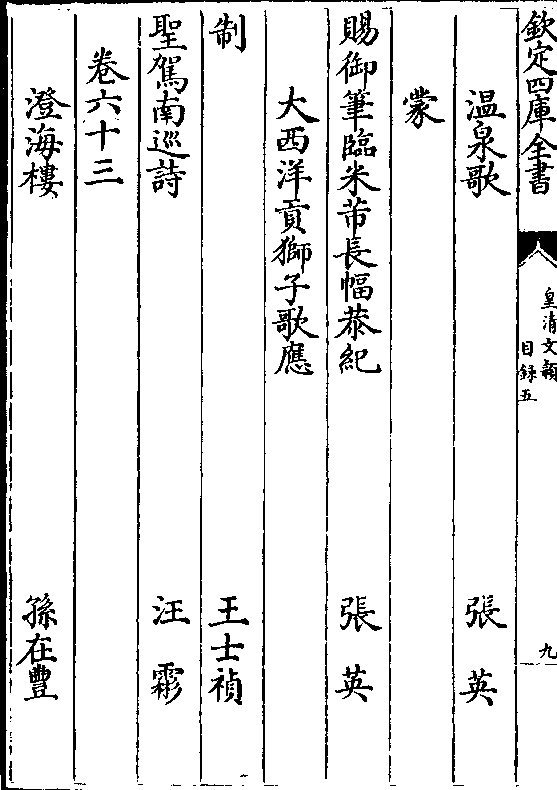 欽定四庫全書
皇清文頴
目録五
九
温泉歌 張英
蒙
賜御筆臨米芾長幅恭紀 張英
大西洋貢獅子歌應
制 王士禎
聖駕南巡詩 汪霦
卷六十三
澄海樓 孫在豐